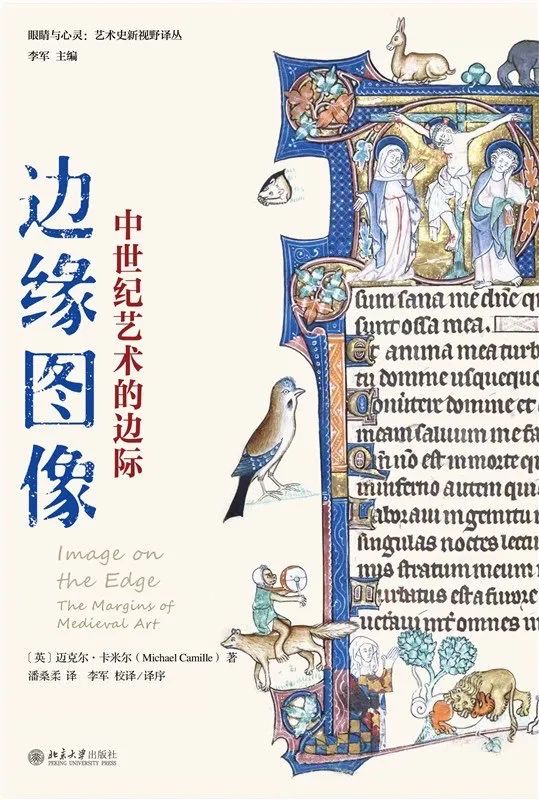 眼睛与心灵：艺术史新视野译丛
李军 主编
边缘图像
中世纪艺术的边际
Image on
the Edge
The Margins of
Medieval Art
［英］迈克尔·卡米尔（Michael Camille）著
潘桑柔 译 李军 校译/译序
北京大学出版社
PEKING UNIVERSITY PRESS
sum sana me dñe q
sunt ossa mea.
Et anima mea turb
tu domine usqueque
Convertere domine et
meam salvum me fa
est in morte q
in inferno autem qui
Laboravi in gemitu
singulas noctes lectu
mis stratum meum
Turbatus est a furore
omnes in